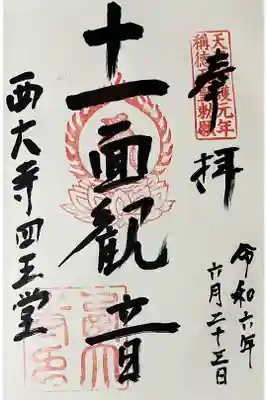 奉拝
天平神護元年
称徳天皇勅願
令和六年
六月二十三日
十一面観音
西大寺四王堂